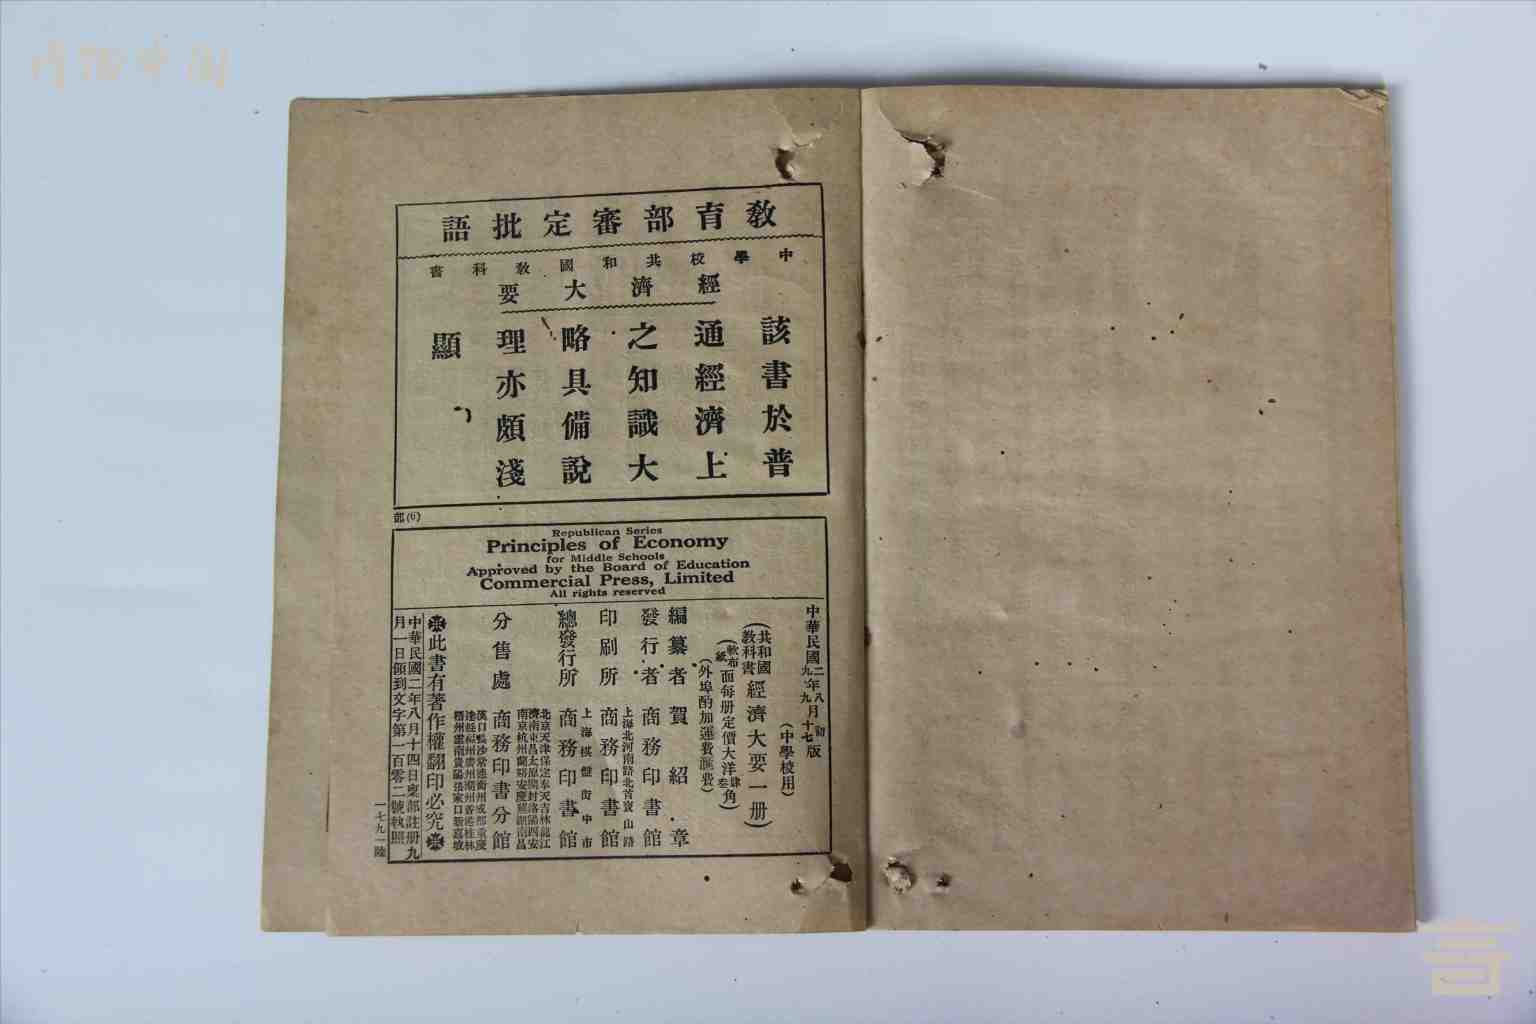 教育部審定批語
中學校共和國教科書
經濟大要
該書於普
通經濟上
之知識大
略具備說
理亦頗淺
顯
部(6)
Republican Series
Principles of Economy
for Middle Schools
Approved by the Board of Education
Commercial Press, Limited
All rights reserved
中華民國二年八月初版
九年九月十七版
(中學校用)
(共和國教科書經濟大要一册)
(軟布面每册定價大洋肆角)
紙 叁
(外埠酌加運費滙費)
編纂者 賀紹章
發行者 商務印書館
上海北河南路北首寶山路
印刷所 商務印書館
上海棋盤街中市
總發行所 商務印書館
北京天津保定奉天吉林龍江
濟南東昌太原開封洛陽西安
南京杭州蘭谿安慶蕪湖南昌
分售處 商務印書分館
漢口長沙常德衡州成都重慶
達縣福州廣州潮州香港桂林
梧州雲南貴陽張家口新嘉坡
此書有著作權翻印必究
中華民國二年八月十四日稟部註册九
月一日領到文字第一百零二號執照
一七九一陸